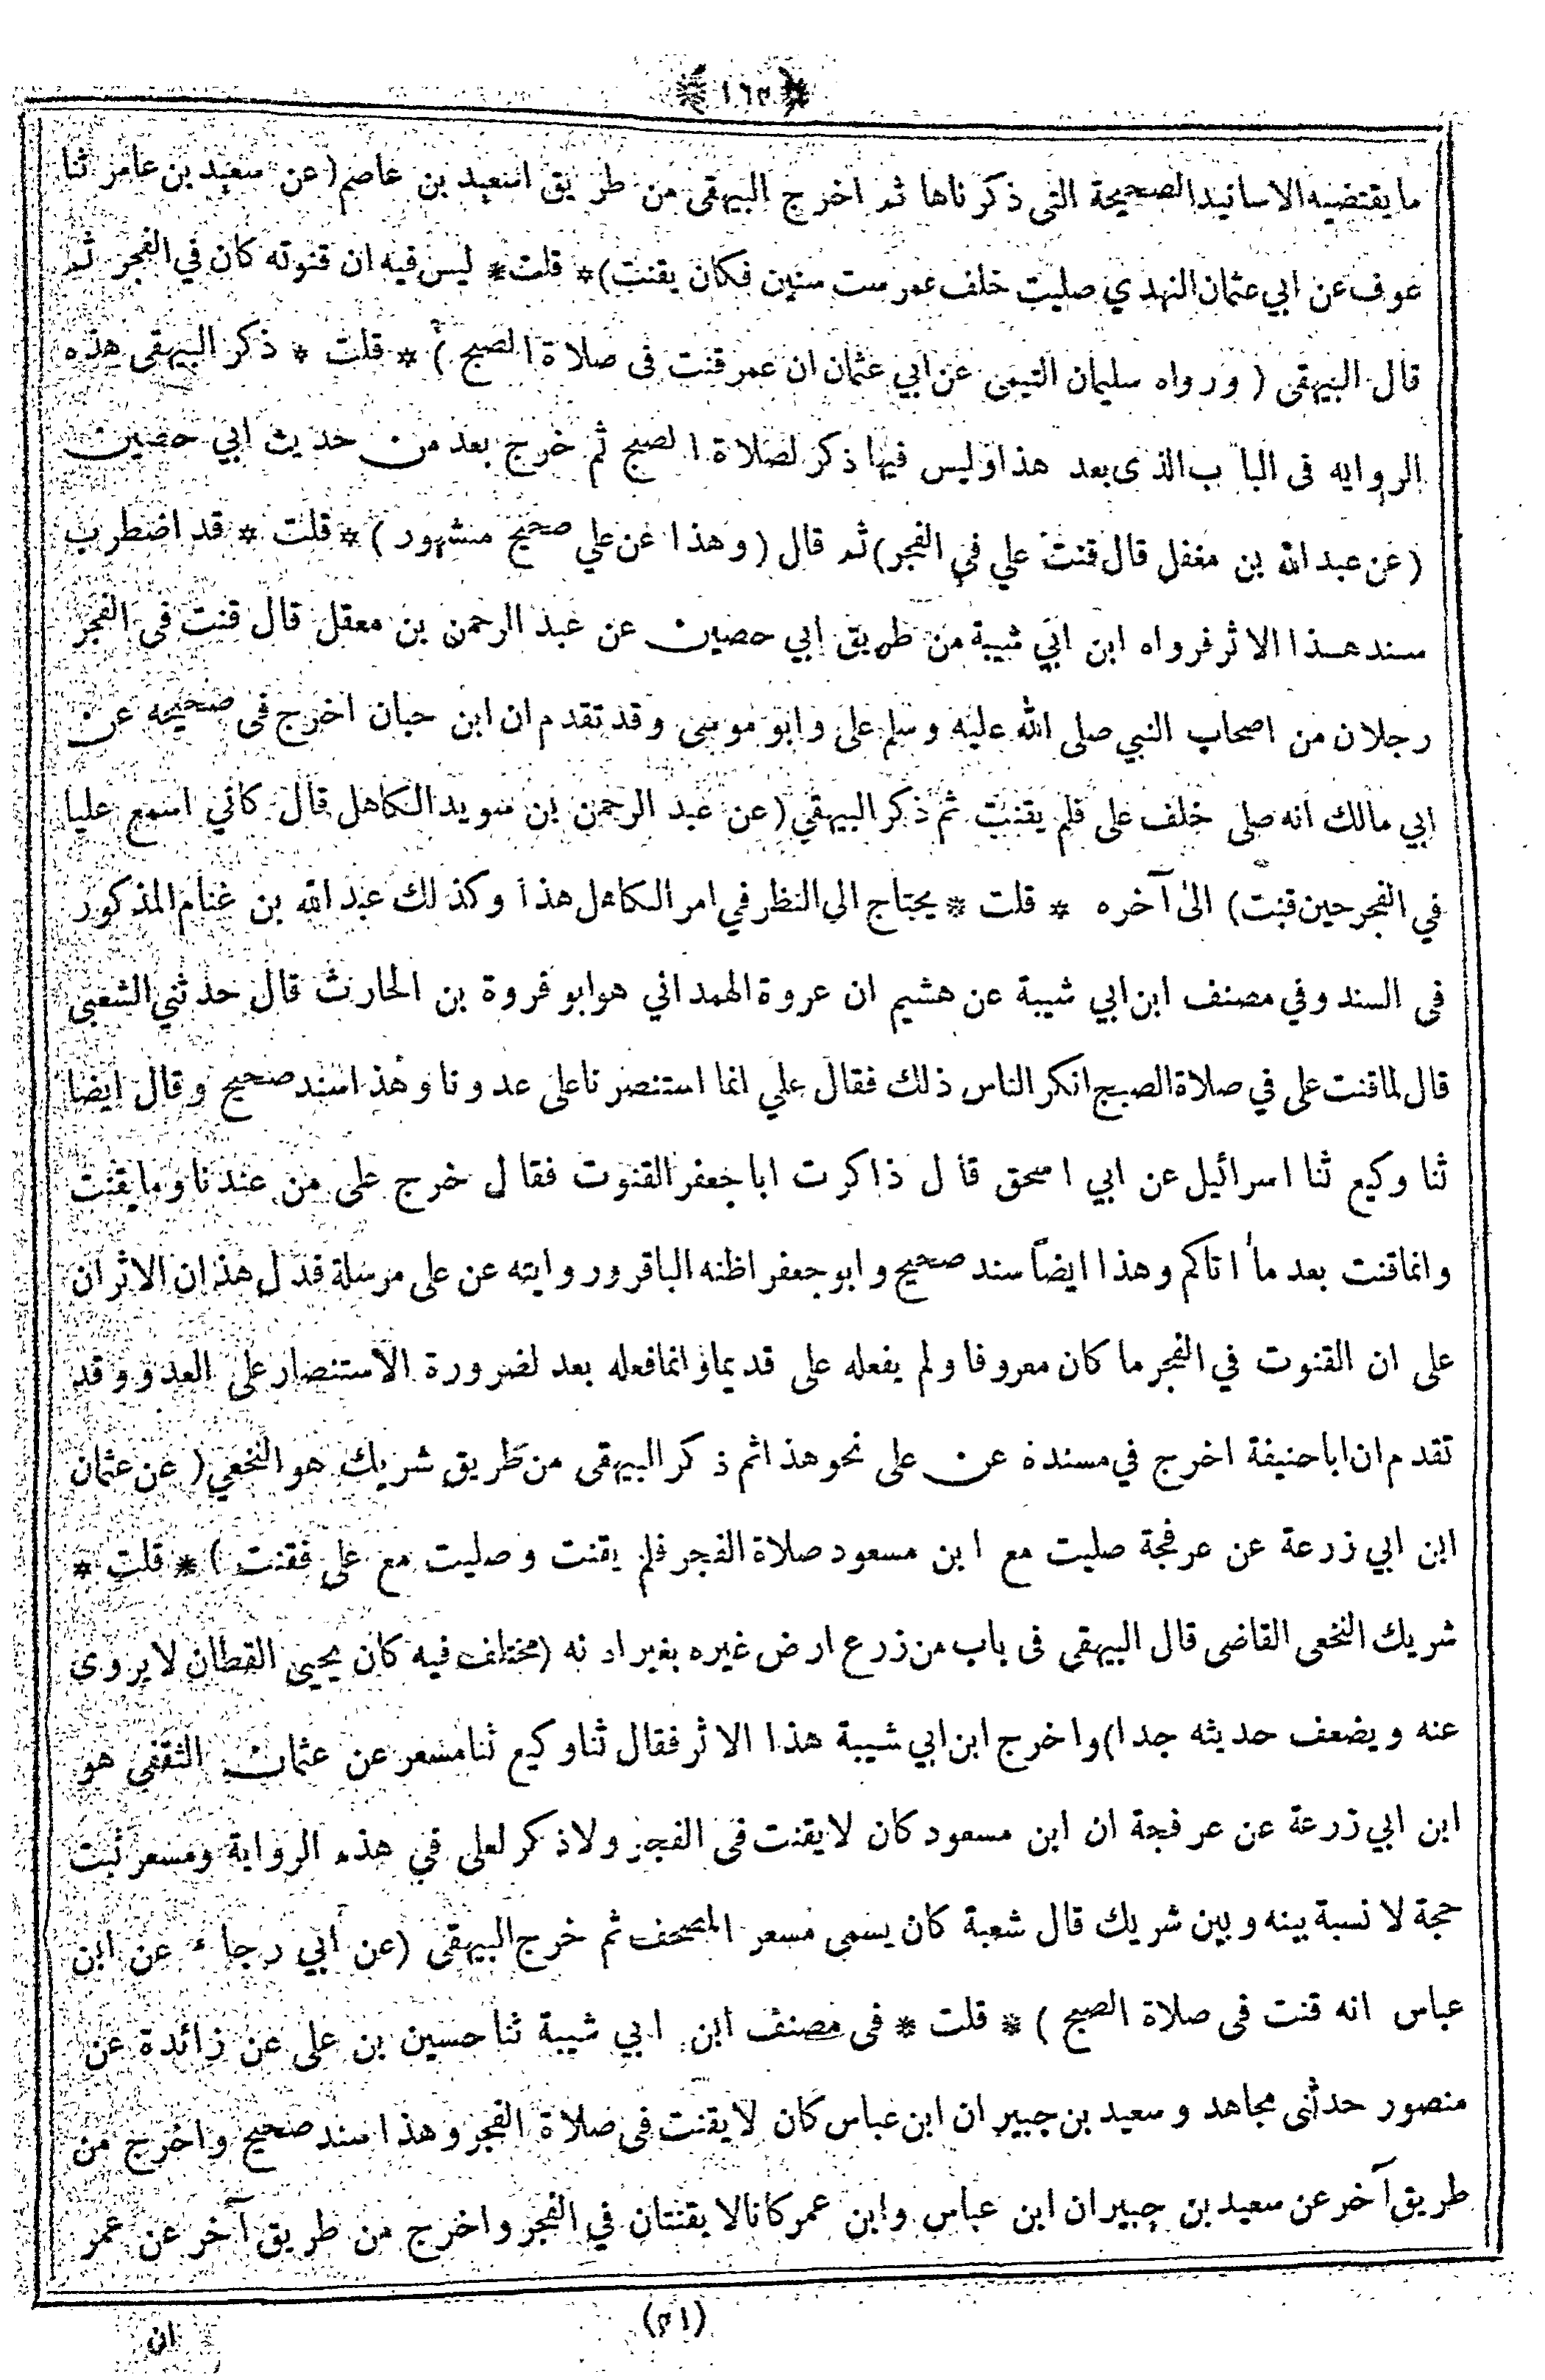 ﴿١٦٢﴾
ما يقتضيه الاسانيد الصحيحة التى ذكرناها ثم اخرج البيهقى من طريق اسعيد بن عاصم (عن سعيد بن عامر ثنا
عوف عن ابي عثمان النهدي صليت خلف عمر ست سنين فكان يقنت) * قلت * ليس فيه ان قنوته كان في الفجر ثم
قال البيهقى (ورواه سليمان التيمى عن ابي عثمان ان عمر قنت فى صلاة الصبح) * قلت * ذكر البيهقى هذه
الروايه فى الباب الذى بعد هذا وليس فيها ذكر لصلاة الصبح ثم خرج بعد من حديث ابي حصين
(عن عبد الله بن مغفل قال قنت علي في الفجر) ثم قال (وهذا عن علي صحيح مشهور) * قلت * قد اضطرب
سند هذا الاثر فرواه ابن ابي شيبة من طريق ابي حصين عن عبد الرحمن بن معقل قال قنت فى الفجر
رجلان من اصحاب النبي صلى الله عليه وسلم على وابو موسى وقد تقدم ان ابن حبان اخرج فى صحيحه عن
ابي مالك انه صلى خلف على فلم يقنت ثم ذكر البيهقي (عن عبد الرحمن بن سويد الكاهل قال كاني اسمع عليا
في الفجر حين قنت) الى آخره * قلت * يحتاج الي النظر في امر الكاهل هذا وكذلك عبد الله بن غنام المذكور
فى السند وفي مصنف ابن ابي شيبة عن هشيم ان عروة الهمداني هو ابو فروة بن الحارث قال حدثني الشعبى
قال لما قنت على في صلاة الصبح انكر الناس ذلك فقال علي انما استنصرنا على عدونا وهذا سند صحيح وقال ايضا
ثنا وكيع ثنا اسرائيل عن ابي اسحق قال ذاكرت ابا جعفر القنوت فقال خرج على من عندنا وما يقنت
وانما قنت بعد ما اتاكم وهذا ايضاً سند صحيح وابو جعفر اظنه الباقر وروايته عن على مرسلة فدل هذان الاثران
على ان القنوت في الفجر ما كان معروفا ولم يفعله على قديما وانما فعله بعد لضرورة الاستنصار على العدو وقد
تقدم ان ابا حنيفة اخرج في مسنده عن على نحو هذا ثم ذكر البيهقى من طريق شريك هو النخعي (عن عثمان
ابن ابي زرعة عن عرفجة صليت مع ابن مسعود صلاة الفجر فلم يقنت وصليت مع على فقنت) * قلت *
شريك النخعى القاضى قال البيهقى فى باب من زرع ارض غيره بغير اذنه (مختلف فيه كان يحيى القطان لا يروى
عنه ويضعف حديثه جدا) واخرج ابن ابي شيبة هذا الاثر فقال ثنا وكيع ثنا مسعر عن عثمان الثقفى هو
ابن ابي زرعة عن عرفجة ان ابن مسعود كان لا يقنت فى الفجر ولا ذكر لعلى في هذه الرواية ومسعر ثبت
حجة لا نسبة بينه وبين شريك قال شعبة كان يسمى مسعر المصحف ثم خرج البيهقى (عن ابي رجاء عن ابن
عباس انه قنت فى صلاة الصبح) * قلت * فى مصنف ابن ابي شيبة ثنا حسين بن على عن زائدة عن
منصور حدثنى مجاهد وسعيد بن جبير ان ابن عباس كان لا يقنت فى صلاة الفجر وهذا سند صحيح واخرج من
طريق آخر عن سعيد بن جبير ان ابن عباس وابن عمر كانا لا يقنتان في الفجر واخرج من طريق آخر عن عمر
(٢١)
ان